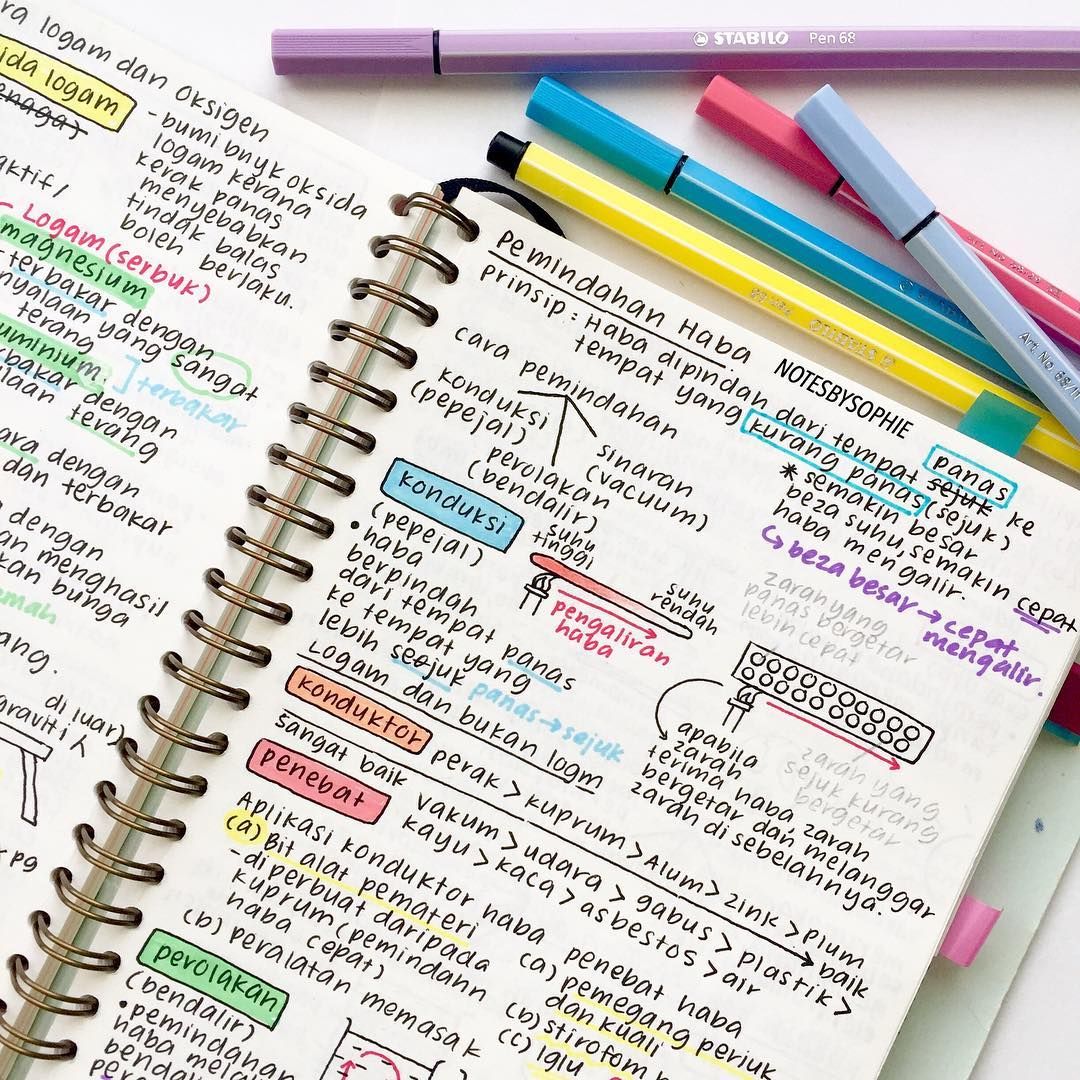 logam dan oksigen
logam
- bumi bnyk oksida
logam kerana
kerak panas
menyebabkan
tindak balas
boleh berlaku.
Logam (serbuk)
magnesium
- terbakar dengan
nyalaan yang sangat
terang
dengan
terang
] terbakar
dengan
dan terbakar
dengan
menghasil
bunga
di luar)
STABILO Pen 68
NOTESBYSOPHIE
Pemindahan Haba
Prinsip: Haba dipindah dari tempat panas sejuk ke
tempat yang kurang panas (sejuk)
* semakin besar
beza suhu, semakin cepat
haba mengalir.
↳ beza besar → cepat
mengalir.
cara pemindahan
konduksi
(pepejal)
perolakan
(bendalir)
sinaran
(vacuum)
konduksi
(pepejal)
• haba
berpindah
dari tempat panas
ke tempat yang
lebih sejuk panas → sejuk
suhu
tinggi
suhu
rendah
pengaliran
haba
zarah yang
panas bergetar
lebih cepat
apabila
zarah
terima haba, zarah
bergetar dan melanggar
zarah di sebelahnya.
zarah yang
sejuk kurang
bergetar
Logam dan bukan logm
konduktor perak > kuprum > Alum > zink > plum
sangat baik
baik
penebat vakum > udara > gabus > plastik >
kayu > kaca > asbestos > air
Aplikasi konduktor haba
(a) Bit alat pemateri
- diperbuat daripada
kuprum (pemindahn
haba cepat)
(b) peralatan memasak
penebat haba
(a) pemegang periuk
dan kuali
(b) stirofom
(c) iglu
perolakan
(bendalir)
• pemindahan
haba